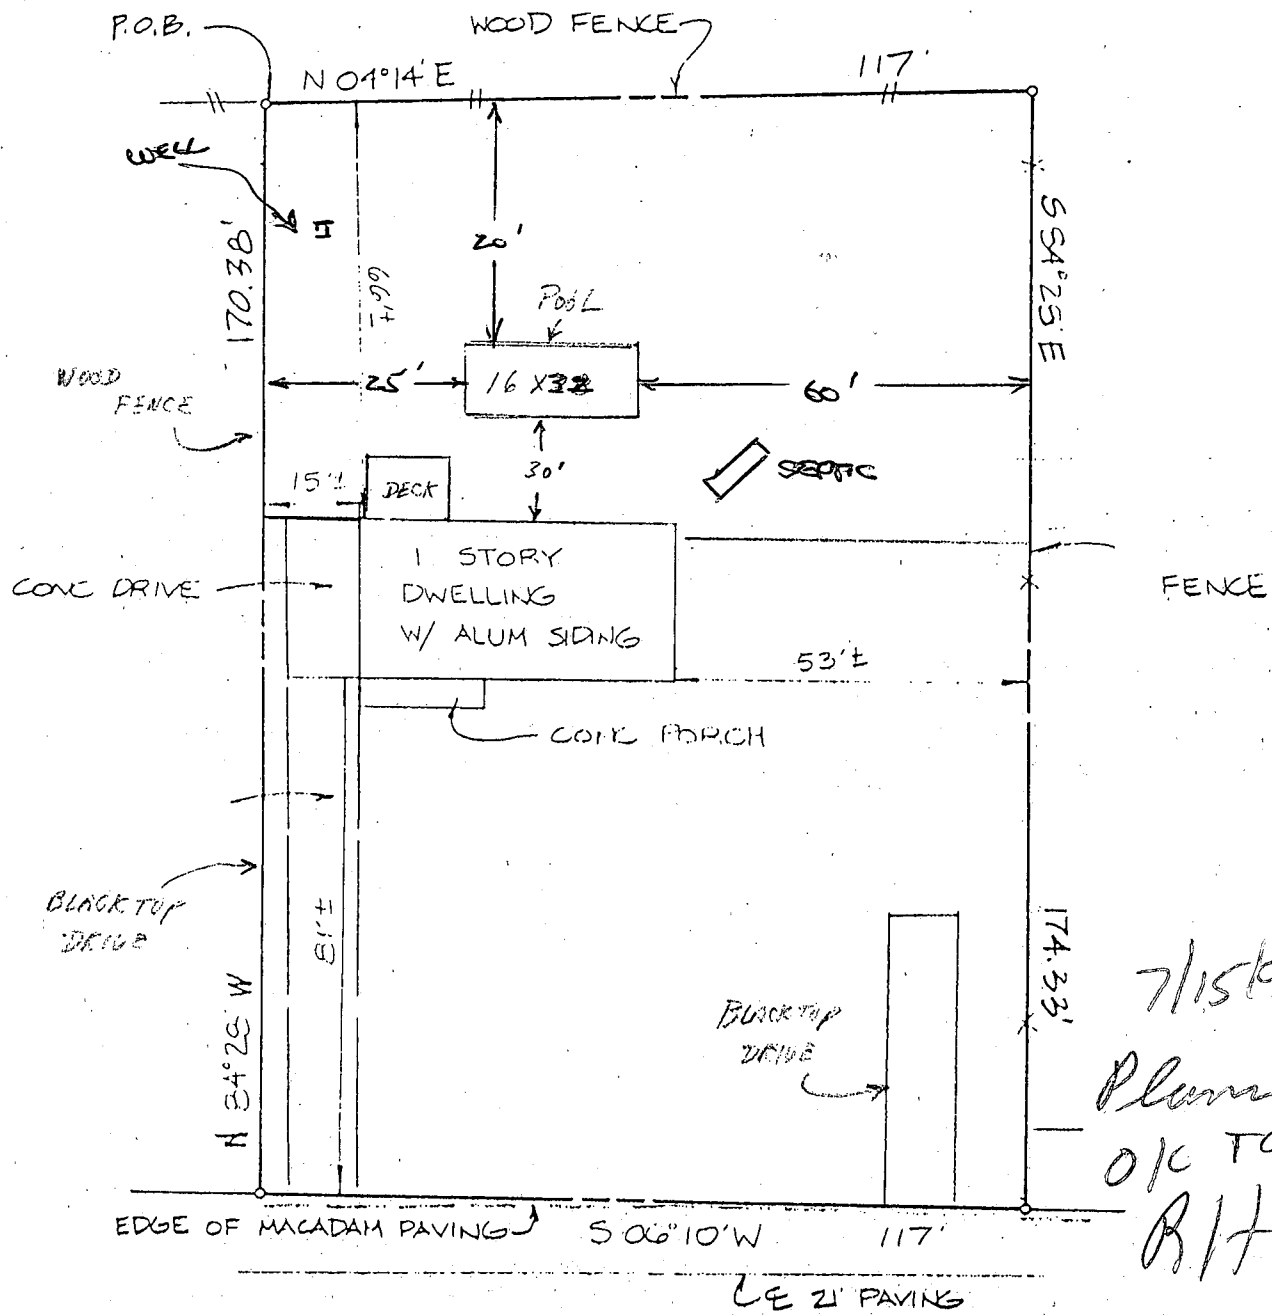 P.O.B.
WOOD FENCE
N 04°14' E
117'
WELL
170.38'
66'±
20'
S 84°25' E
POOL
WOOD
FENCE
25'
16 X 32
60'
15'±
DECK
30'
SEPTIC
CONC DRIVE
1 STORY
DWELLING
W/ ALUM SIDING
FENCE
53'±
CONC PORCH
BLACK TOP
DRIVE
81'±
N 84°28' W
174.33'
BLACKTOP
DRIVE
7/15/
O/C TO
EDGE OF MACADAM PAVING
S 06°10'W
117'
℄ 21' PAVING